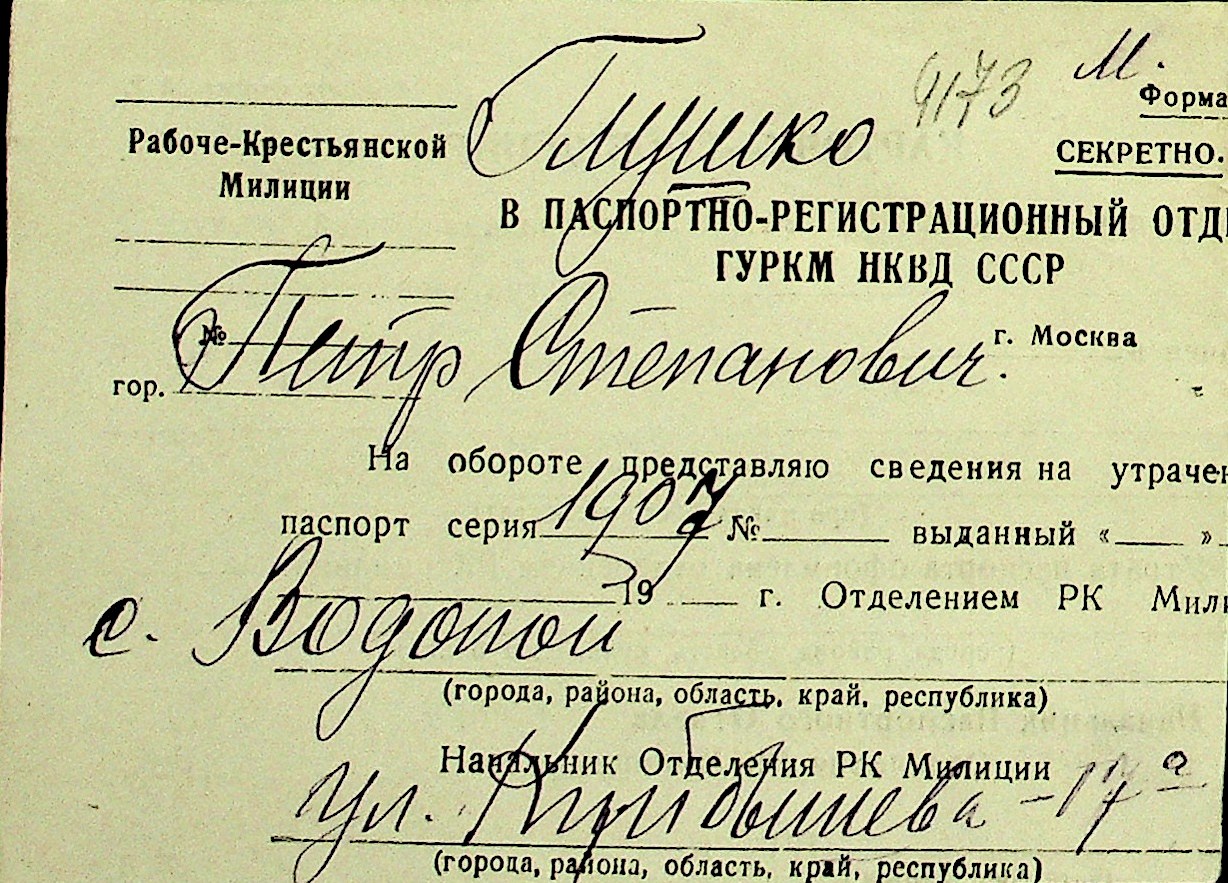 М.
4173
Форма
Глушко
Рабоче-Крестьянской
Милиции
СЕКРЕТНО.
В ПАСПОРТНО-РЕГИСТРАЦИОННЫЙ ОТДЕ
ГУРКМ НКВД СССР
№
Петр Степанович.
г. Москва
гор.
На обороте представляю сведения на утрачен
1907
паспорт серия № выданный « »
19 г. Отделением РК Мили
с. Водопой
(города, района, область, край, республика)
Начальник Отделения РК Милиции
ул. Куйбышева - 17а
(города, района, область, край, республика)